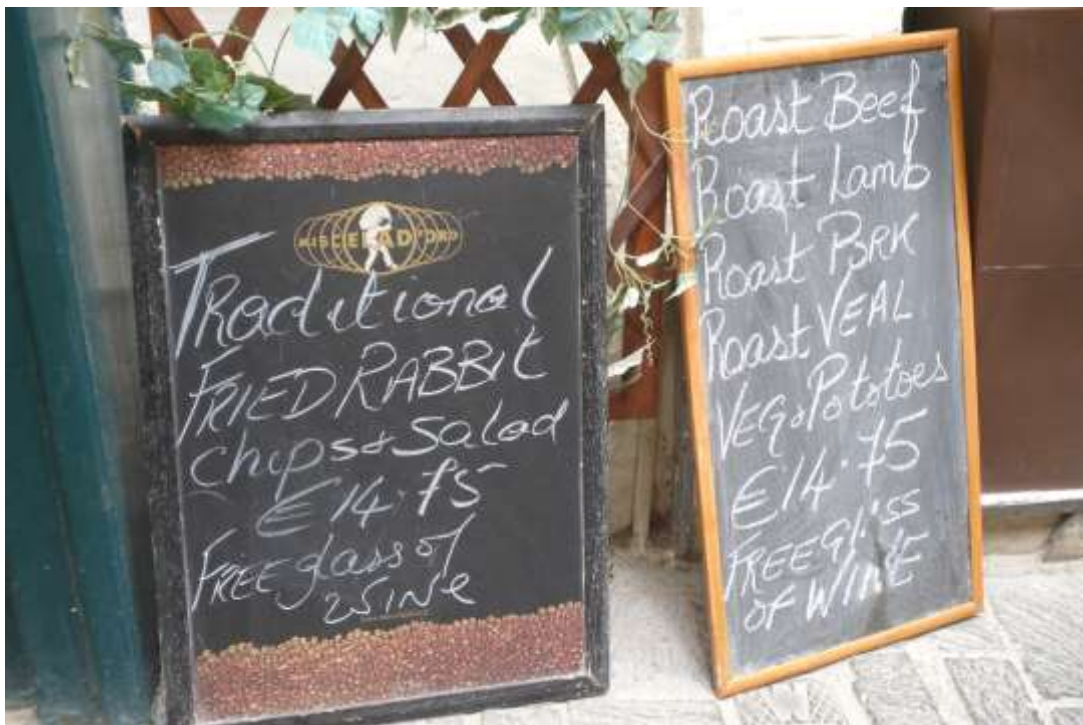 MISCELA D'ORO
Traditional
FRIED RABBIT
chips & Salad
€14.75
FREE glass of
WINE
Roast Beef
Roast Lamb
Roast PORK
Roast VEAL
VEG & Pototoes
€14.75
FREE Glass
OF WINE